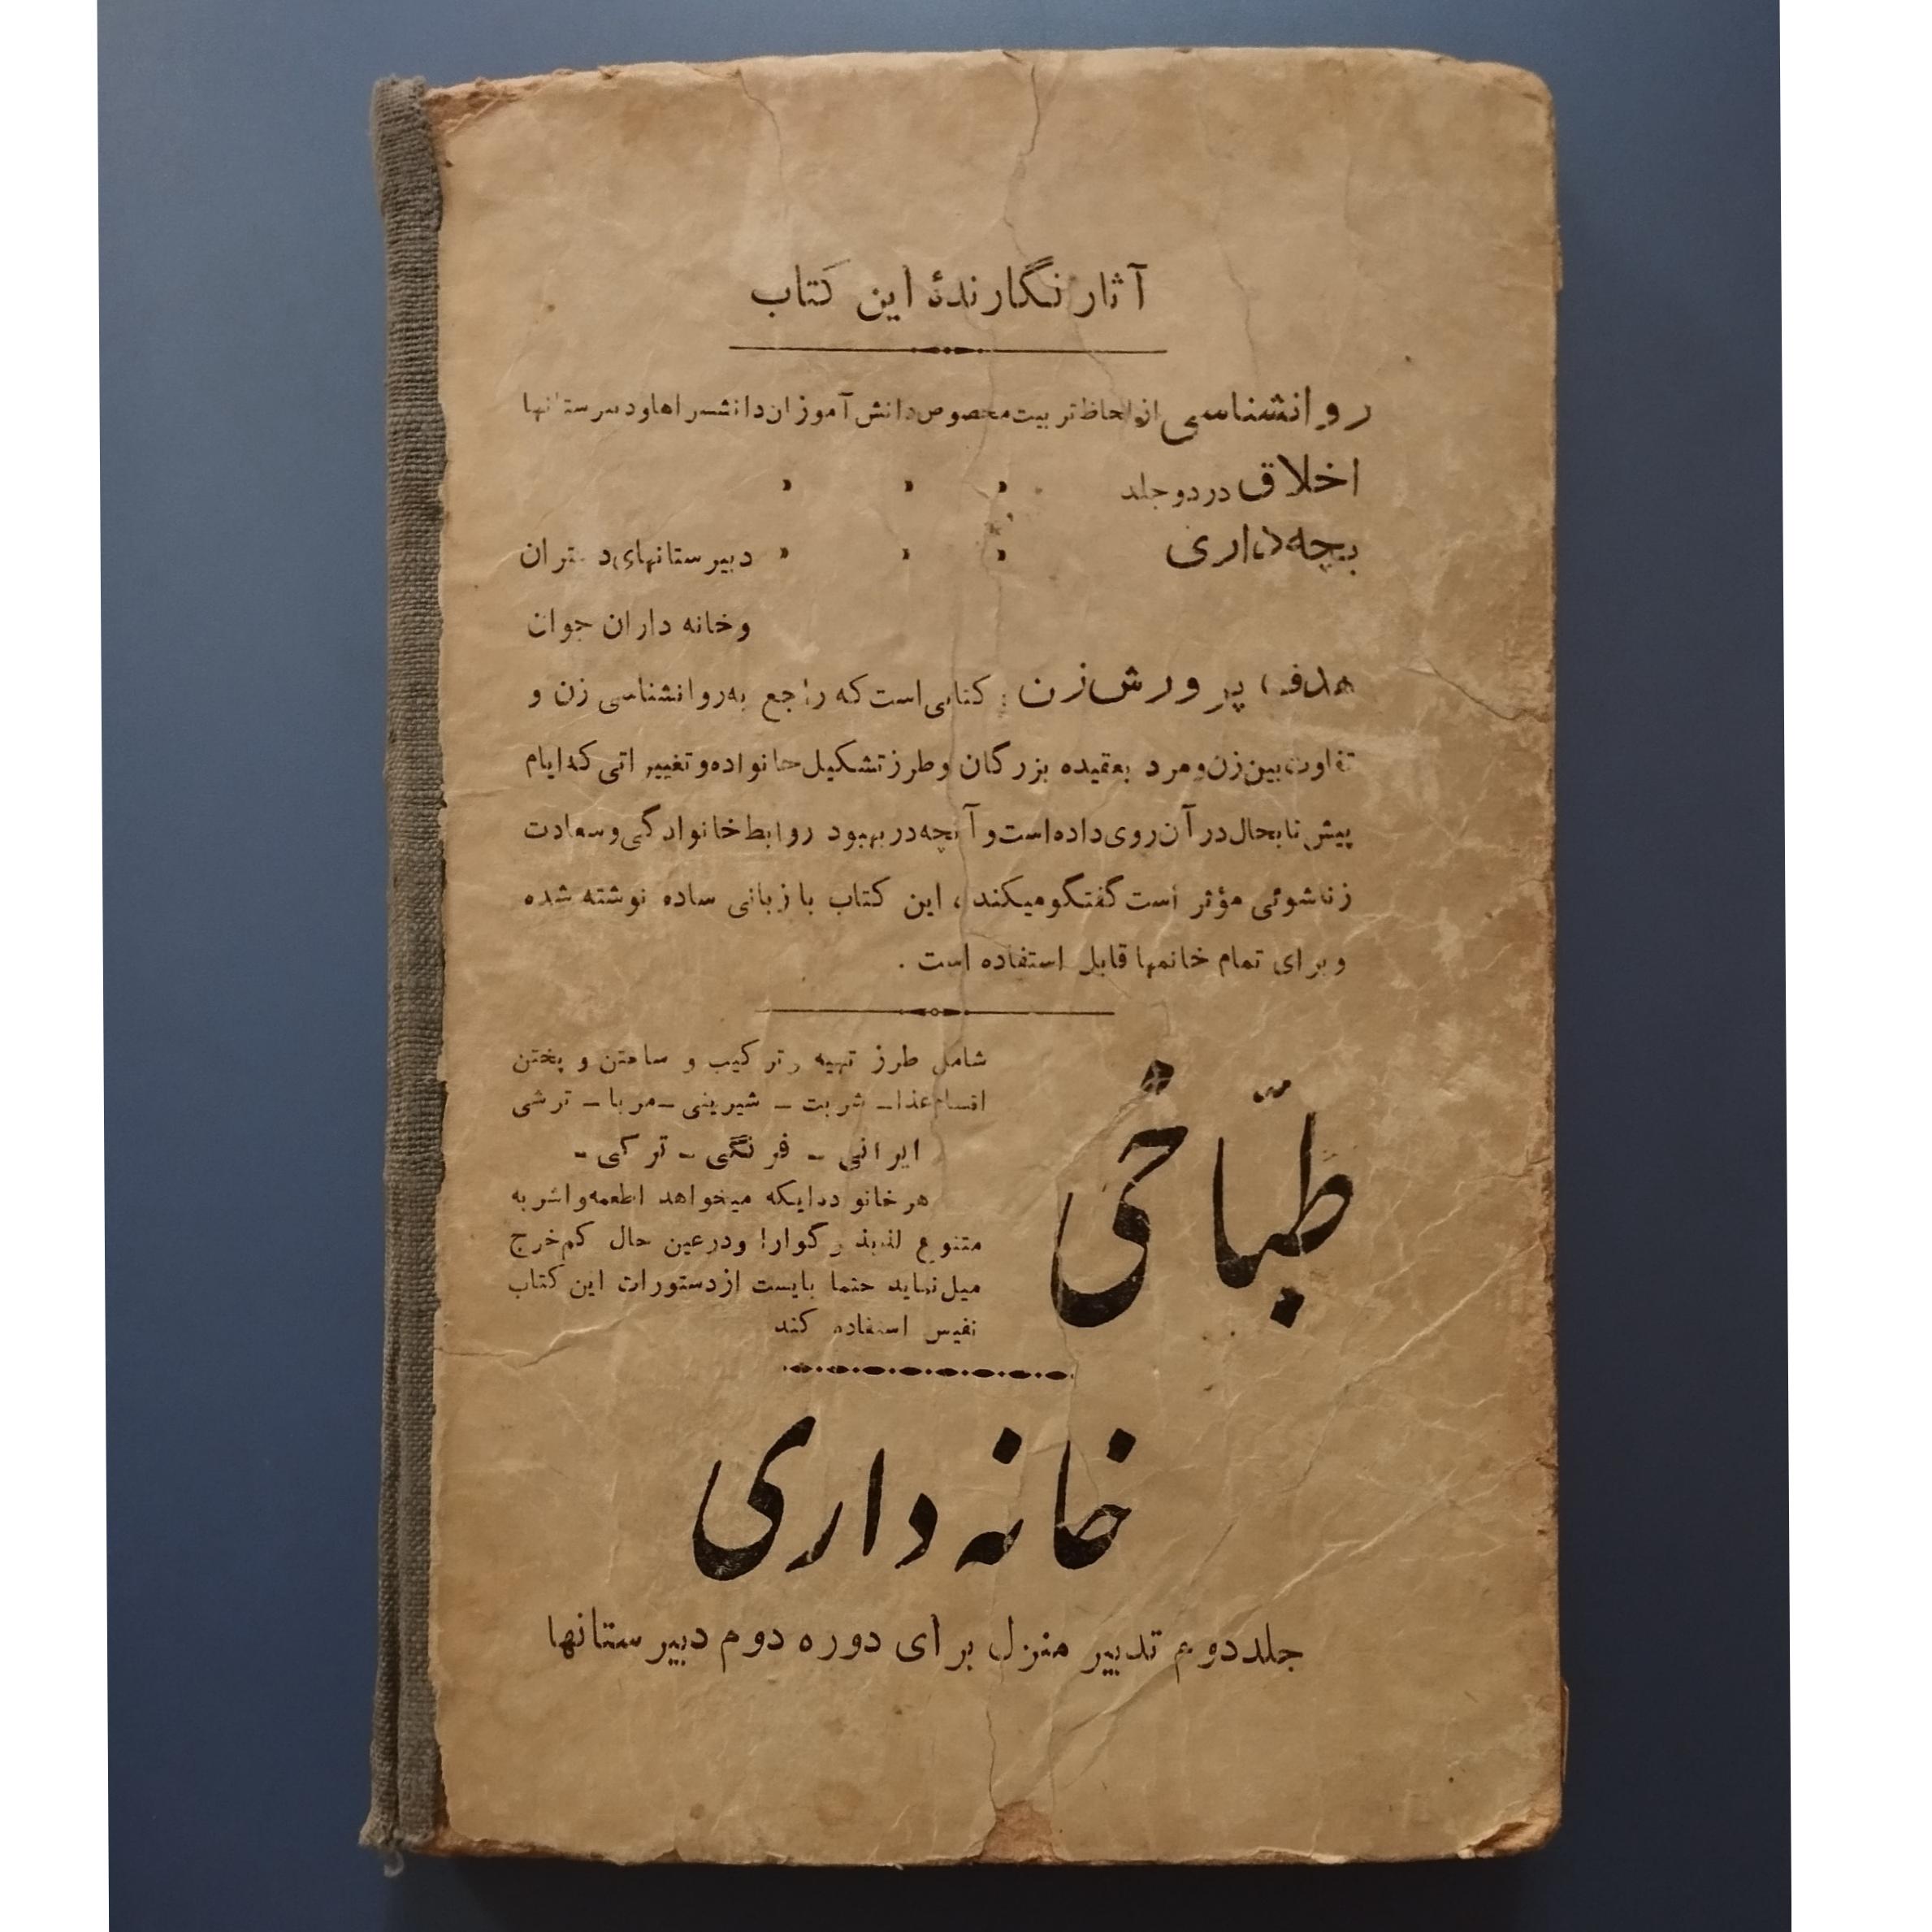 آثار نگارندهٔ این کتاب
روانشناسی از لحاظ تربیت مخصوص دانش آموزان دانشسراها و دبیرستانها
اخلاق در دو جلد » » »
بچه‌داری » » » دبیرستانهای دختران
و خانه داران جوان
هدف پرورش زن : کتابی است که راجع به روانشناسی زن و
تفاوت بین زن و مرد بعقیده بزرگان و طرز تشکیل خانواده و تغییراتی که ایام
پیش تا بحال در آن روی داده است و آنچه در بهبود روابط خانوادگی و سعادت
زناشوئی مؤثر است گفتگو میکند ، این کتاب با زبانی ساده نوشته شده
و برای تمام خانمها قابل استفاده است .
طبّاخی
شامل طرز تهیه و ترکیب و ساختن و پختن
اقسام غذا ـ شربت ـ شیرینی ـ مربا ـ ترشی
ایرانی ـ فرنگی ـ ترکی ـ
هر خانواده‌ایکه میخواهد اطعمه و اشربه
متنوع لذیذ و گوارا و در عین حال کم خرج
میل نماید حتما بایست از دستورات این کتاب
نفیس استفاده کند
خانه‌داری
جلد دوم تدبیر منزل برای دوره دوم دبیرستانها